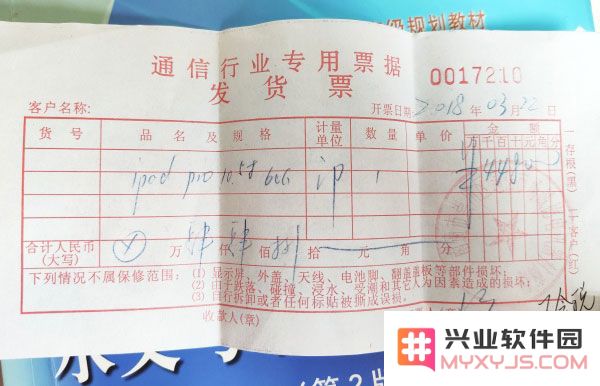 级规划教材
通信行业专用票据
发货票
0017210
客户名称:
开票日期 2018 年 03 月 22 日
货号 品名及规格 计量单位 数量 单价 金额
万 千 百 十 元 角 分
ipad pro 10.5寸 64G 1 ¥4480
合计人民币(大写) ⊗ 万 肆 仟 肆 佰 捌 拾 元 角 分
下列情况不属保修范围:
(1) 显示屏、外盖、天线、电池脚、翻盖盖板等部件损坏;
(2) 由于跌落、碰撞、浸水、受潮和其它人为因素造成的损坏;
(3) 自行拆卸或者任何标贴被撕成误损。
收款人(章)
一存根(黑)
二客户(红)
第2版
兴业软件园
MYXYJS.COM